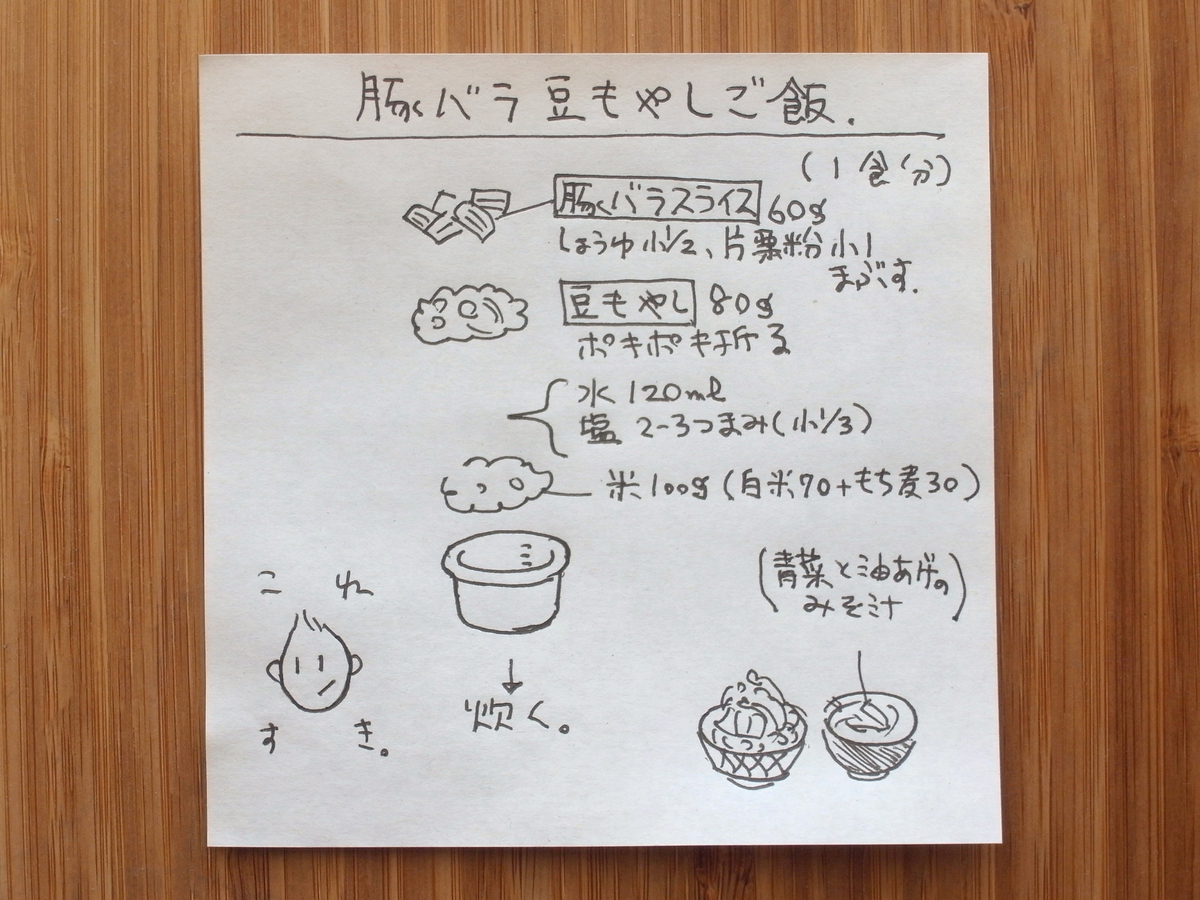 豚バラ豆もやしご飯.
(1食分)
豚バラスライス 60g
しょうゆ小1/2、片栗粉小1
まぶす.
豆もやし 80g
ポキポキ折る
水 120ml
塩 2-3つまみ(小1/3)
米100g(白米70+もち麦30)
(青菜と油あげの
みそ汁)
これ
すき。
炊く。